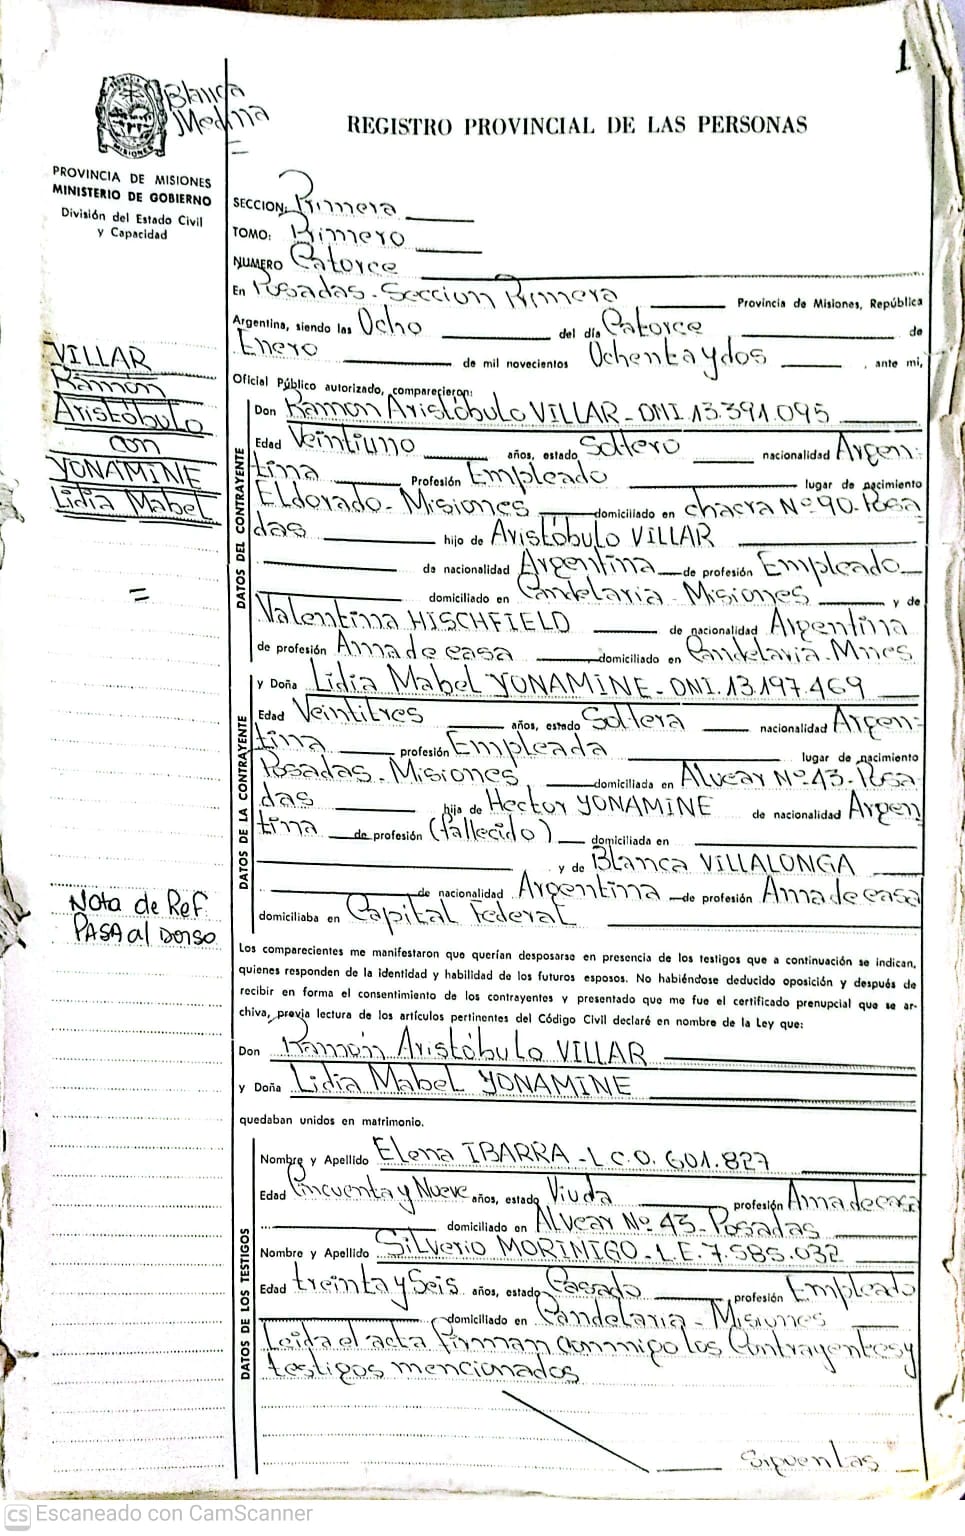 1
Blanca
Medina
REGISTRO PROVINCIAL DE LAS PERSONAS
PROVINCIA DE MISIONES
MINISTERIO DE GOBIERNO
División del Estado Civil
y Capacidad
SECCION: Primera
TOMO: Primero
NUMERO Catorce
En Posadas - Seccion Primera Provincia de Misiones, República
Argentina, siendo las Ocho del día Catorce de
Enero de mil novecientos Ochentaydos, ante mi,
Oficial Público autorizado, comparecieron:
VILLAR
Ramon
Aristóbulo
con
YONAMINE
Lidia Mabel
=
DATOS DEL CONTRAYENTE
Don Ramon Aristóbulo VILLAR - DNI. 13.391.095
Edad Veintiuno años, estado Soltero nacionalidad Argen-
tina Profesión Empleado lugar de nacimiento
Eldorado - Misiones domiciliado en chacra Nº 90. Posa
das hijo de Aristóbulo VILLAR
de nacionalidad Argentina de profesión Empleado
domiciliado en Candelaria - Misiones y de
Valentina HISCHFIELD de nacionalidad Argentina
de profesión Ama de casa domiciliado en Candelaria - Mnes
DATOS DE LA CONTRAYENTE
y Doña Lidia Mabel YONAMINE - DNI. 13.197.469
Edad Veintitres años, estado Soltera nacionalidad Argen-
tina profesión Empleada lugar de nacimiento
Posadas - Misiones domiciliada en Alvear Nº 43 - Posa
das hija de Hector YONAMINE de nacionalidad Argen
tina de profesión (fallecido) domiciliada en
y de Blanca VILLALONGA
de nacionalidad Argentina de profesión Ama de casa
domiciliaba en Capital Federal
Nota de Ref
PASA al Dorso
Los comparecientes me manifestaron que querían desposarse en presencia de los testigos que a continuación se indican,
quienes responden de la identidad y habilidad de los futuros esposos. No habiéndose deducido oposición y después de
recibir en forma el consentimiento de los contrayentes y presentado que me fue el certificado prenupcial que se ar-
chiva, previa lectura de los artículos pertinentes del Código Civil declaré en nombre de la Ley que:
Don Ramón Aristóbulo VILLAR
y Doña Lidia Mabel YONAMINE
quedaban unidos en matrimonio.
DATOS DE LOS TESTIGOS
Nombre y Apellido Elena IBARRA - L.C.0.601.827
Edad Cincuenta y Nueve años, estado Viuda profesión Ama de casa
domiciliado en Alvear Nº 43 - Posadas
Nombre y Apellido Silverio MORINIGO - L.E. 7.585.032
Edad treinta y Seis años, estado Casado profesión Empleado
domiciliado en Candelaria - Misiones
Leida el acta firman conmigo los Contrayentes y
testigos mencionados
CS Escaneado con CamScanner